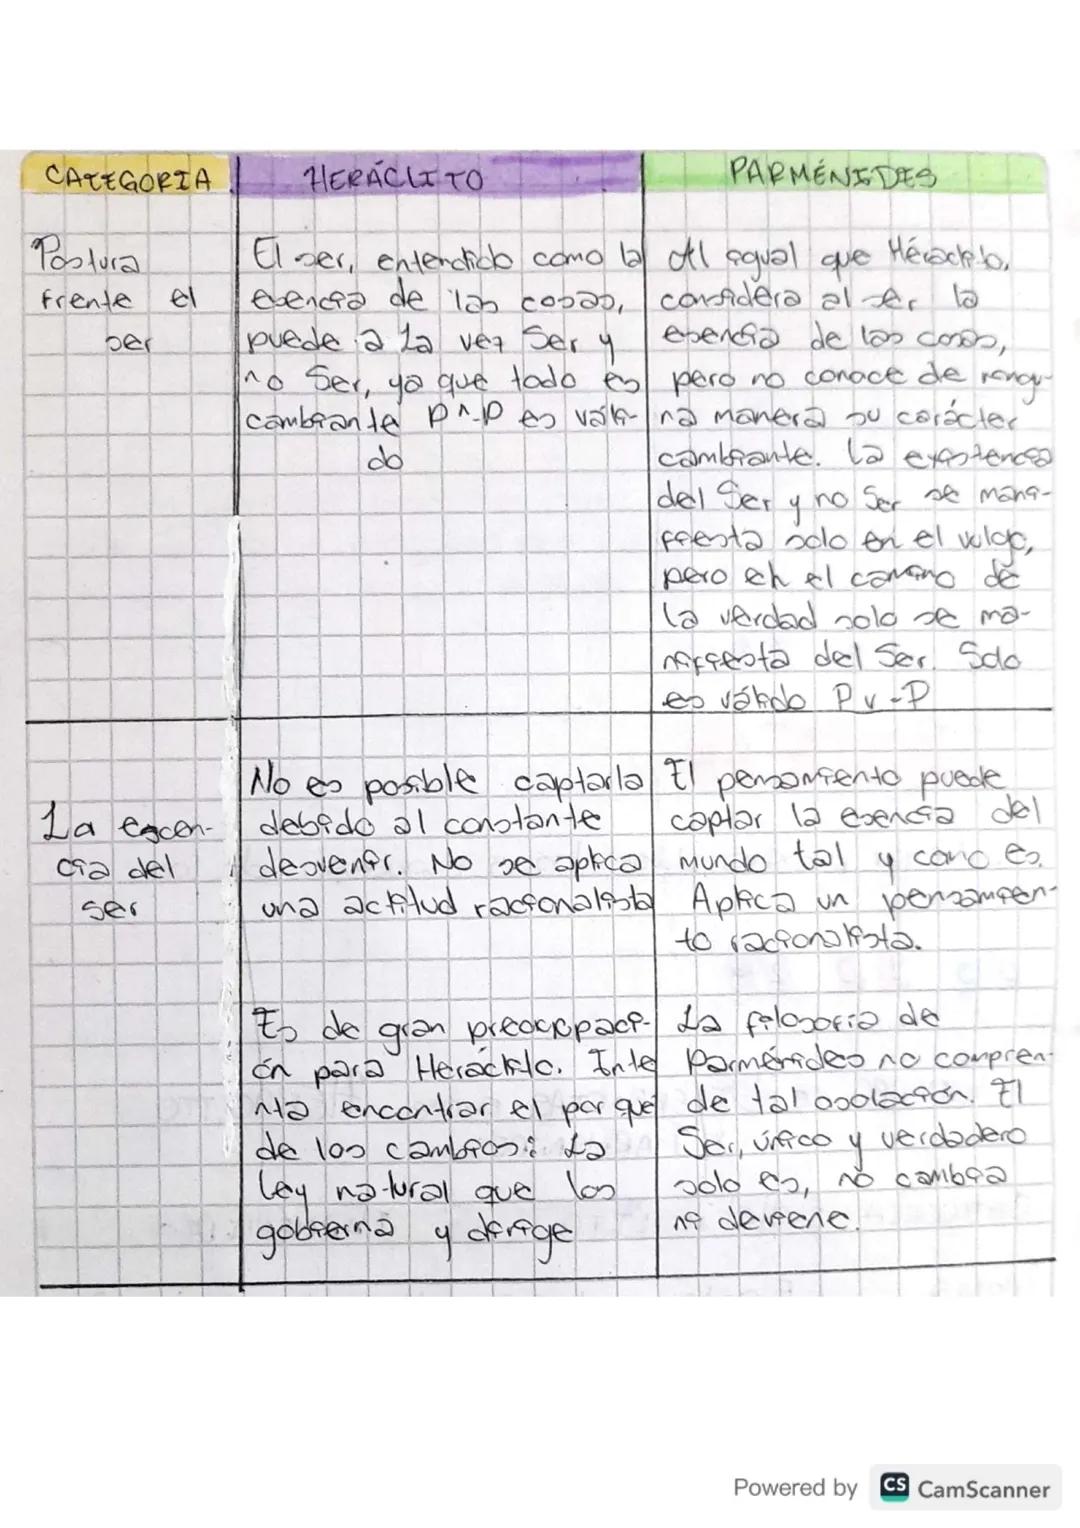 CATEGORIA
HERÁCLITO
PARMÉNIDES
Postura
frente el
ser
El ser, entendido como la
esencia de las cosas,
puede a la vez Ser y
no Ser, ya que todo es
cambiante P^-P es váli-
do
Al igual que Héraclito,
considera al ser la
esencia de las cosas,
pero no conoce de ningu-
na manera su carácter
cambiante. La existencia
del Ser y no Ser se mani-
fiesta solo en el vulgo,
pero en el camino de
la verdad solo se ma-
nifiesta del Ser. Solo
es válido P v -P
La escen-
cia del
ser
No es posible captarla
debido al constante
desvenir. No se aplica
una actitud racionalista
El pensamiento puede
captar la esencia del
mundo tal y como es.
Aplica un pensamien-
to racionalista.
Es de gran preocupaci-
ón para Heráclito. Inte
nta encontrar el por que
de los cambios: La
ley natural que los
gobierna y dirige
La filosofia de
Parménides no compren-
de tal asolación. El
Ser, único y verdadero
solo es, no cambia
ni deviene.
Powered by CS CamScanner